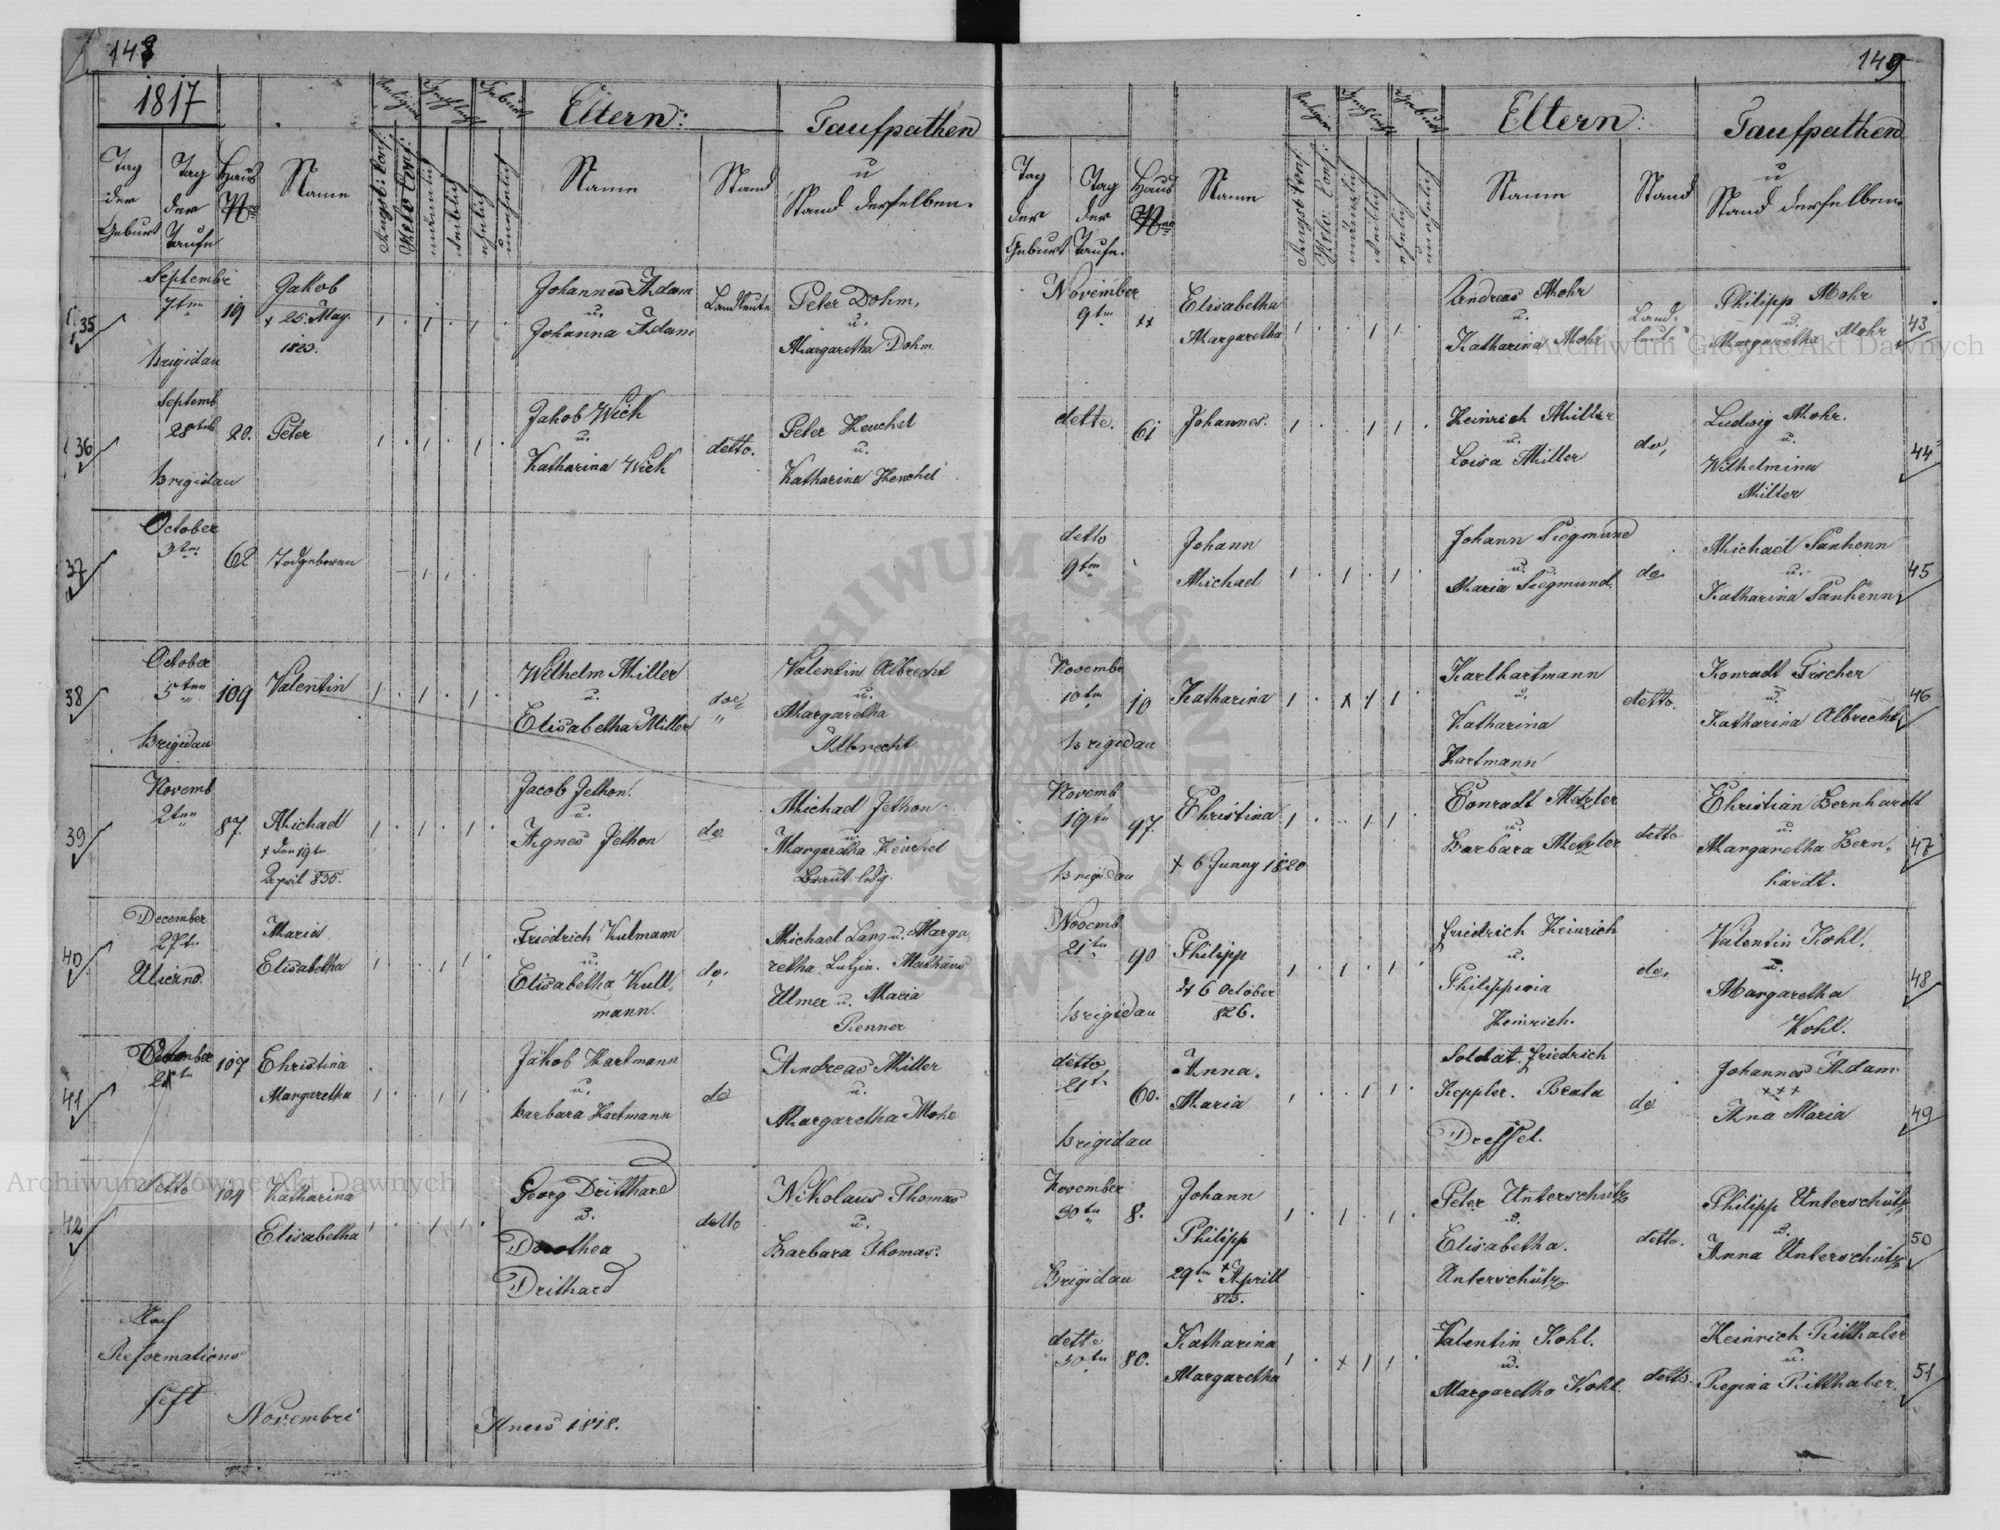 148
1817
Eltern:
Taufpathen
u
Stand derselben.
Tag
der
Geburt
Tag
der
Taufe
Haus
Nro
Name
Religion
Geschlecht
Geburt
Augsb: Conf:
Helv: Conf:
männlich
weiblich
ehelich
unehelich
Name
Stand
35
Septembr
7ten
Brigidau
19
Jakob
+ 25. May.
1823.
1 . 1 . 1 .
Johannes Adam
u.
Johanna Adam
Landleute
Peter Dohm,
u.
Margaretha Dohm
36
Septemb
28ten
Brigidau
20.
Peter
1 . 1 . 1 .
Jakob Wick
u.
Katharina Wick
detto.
Peter Henchel
u.
Katharina Henchel
37
October
3ten
62
Todgeboren
1 1
38
October
5ten
Brigidau
109
Valentin
1 . 1 . 1 .
Wilhelm Miller
u.
Elisabetha Miller
Valentin Albrecht
u.
Margaretha
Albrecht
39
Novemb
2ten
87.
Michael
+ den 19ten
April 835.
1 . 1 . 1 .
Jacob Jethon.
u.
Agnes Jethon
do
Michael Jethon
u.
Margaretha Heuchel
Braut ledig.
40
December
27ten
Ulicrno.
Maria
Elisabetha
1 . . 1 1 .
Friedrich Kulmann
u.
Elisabetha Kull,
mann.
do.
Michael Lang u. Marga,
retha Lutzin. Mathäus
Ulmer u. Maria
Renner
41
December
28ten
107
Christina
Margaretha
1 . . 1 1 .
Jakob Hartmann
u.
Barbara Hartmann
do
Andreas Miller
u.
Margaretha Mohr
42
detto
104
Katharina
Elisabetha
1 . . 1 1 .
Georg Dritthard
u.
Dorothea
Drithard
detto
Nikolaus Thomas
u.
Barbara Thomas.
Nach
Reformations
fest
Novembri
Anno 1818.
149
Eltern:
Taufpathen
u
Stand derselben.
Tag
der
Geburt
Tag
der
Taufe.
Haus
Nro
Name
Religion
Geschlecht
Geburt
Augsb Conf:
Helv: Conf:
männlich
weiblich
ehelich
unehelich
Name
Stand
November
9ten
xx
Elisabetha
Margaretha
1 . . 1 1 .
Andreas Mohr
u.
Katharina Mohr
Land-
leute
Philipp Mohr
u.
Margaretha Mohr
43
detto.
61
Johannes.
1 . . 1 1 .
Heinrich Miller
u.
Loisa Miller
do,
Ludwig Mohr.
u.
Wilhelmina
Miller
44
detto
9ten
Johann
Michael
1 . 1 . 1 .
Johann Siegmund
u.
Maria Siegmund.
do.
Michael Sanhenn
u.
Katharina Sanhenn
45
Novembr
10ten
Brigidau
10
Katharina
1 . x 1 1 .
Karl Hartmann
u.
Katharina
Hartmann
detto.
Konradt Fischer
u.
Katharina Albrecht
46
Novemb
19ten
Brigidau
97.
Christina
+ 6 Junny 1820
1 . . 1 1 .
Conradt Metzler
u.
Barbara Metzler
detto
Christian Bernhardt
u.
Margaretha Bern,
hardt.
47
Novemb
21ten
Brigidau
90
Philipp
6 October
826.
1 . 1 . 1 .
Friedrich Heinrich
u.
Philippina
Heinrich.
do,
Valentin Kohl.
u.
Margaretha
Kohl.
48
detto
21t
Brigidau
60.
Anna.
Maria
1 . . 1 1 .
Soldat. Friedrich
Keppler. Beata
Dressel.
do
Johannes Adam
+++
Ana Maria
49
November
30ten
Brigidau
8.
Johann
Philipp
+
29ten Aprill
823.
1 . 1 . 1 .
Peter Unterschütz
u.
Elisabetha.
Unterschütz.
detto.
Philipp Unterschütz
u.
Anna Unterschütz
50
detto
30ten
80.
Katharina
Margaretha
1 . x 1 1 .
Valentin Kohl.
u.
Margaretha Kohl.
detto.
Heinrich Ritthaler
u.
Regina Ritthaler.
51
Archiwum Główne Akt Dawnych
Archiwum Główne Akt Dawnych
ARCHIWUM GŁÓWNE AKT DAWNYCH